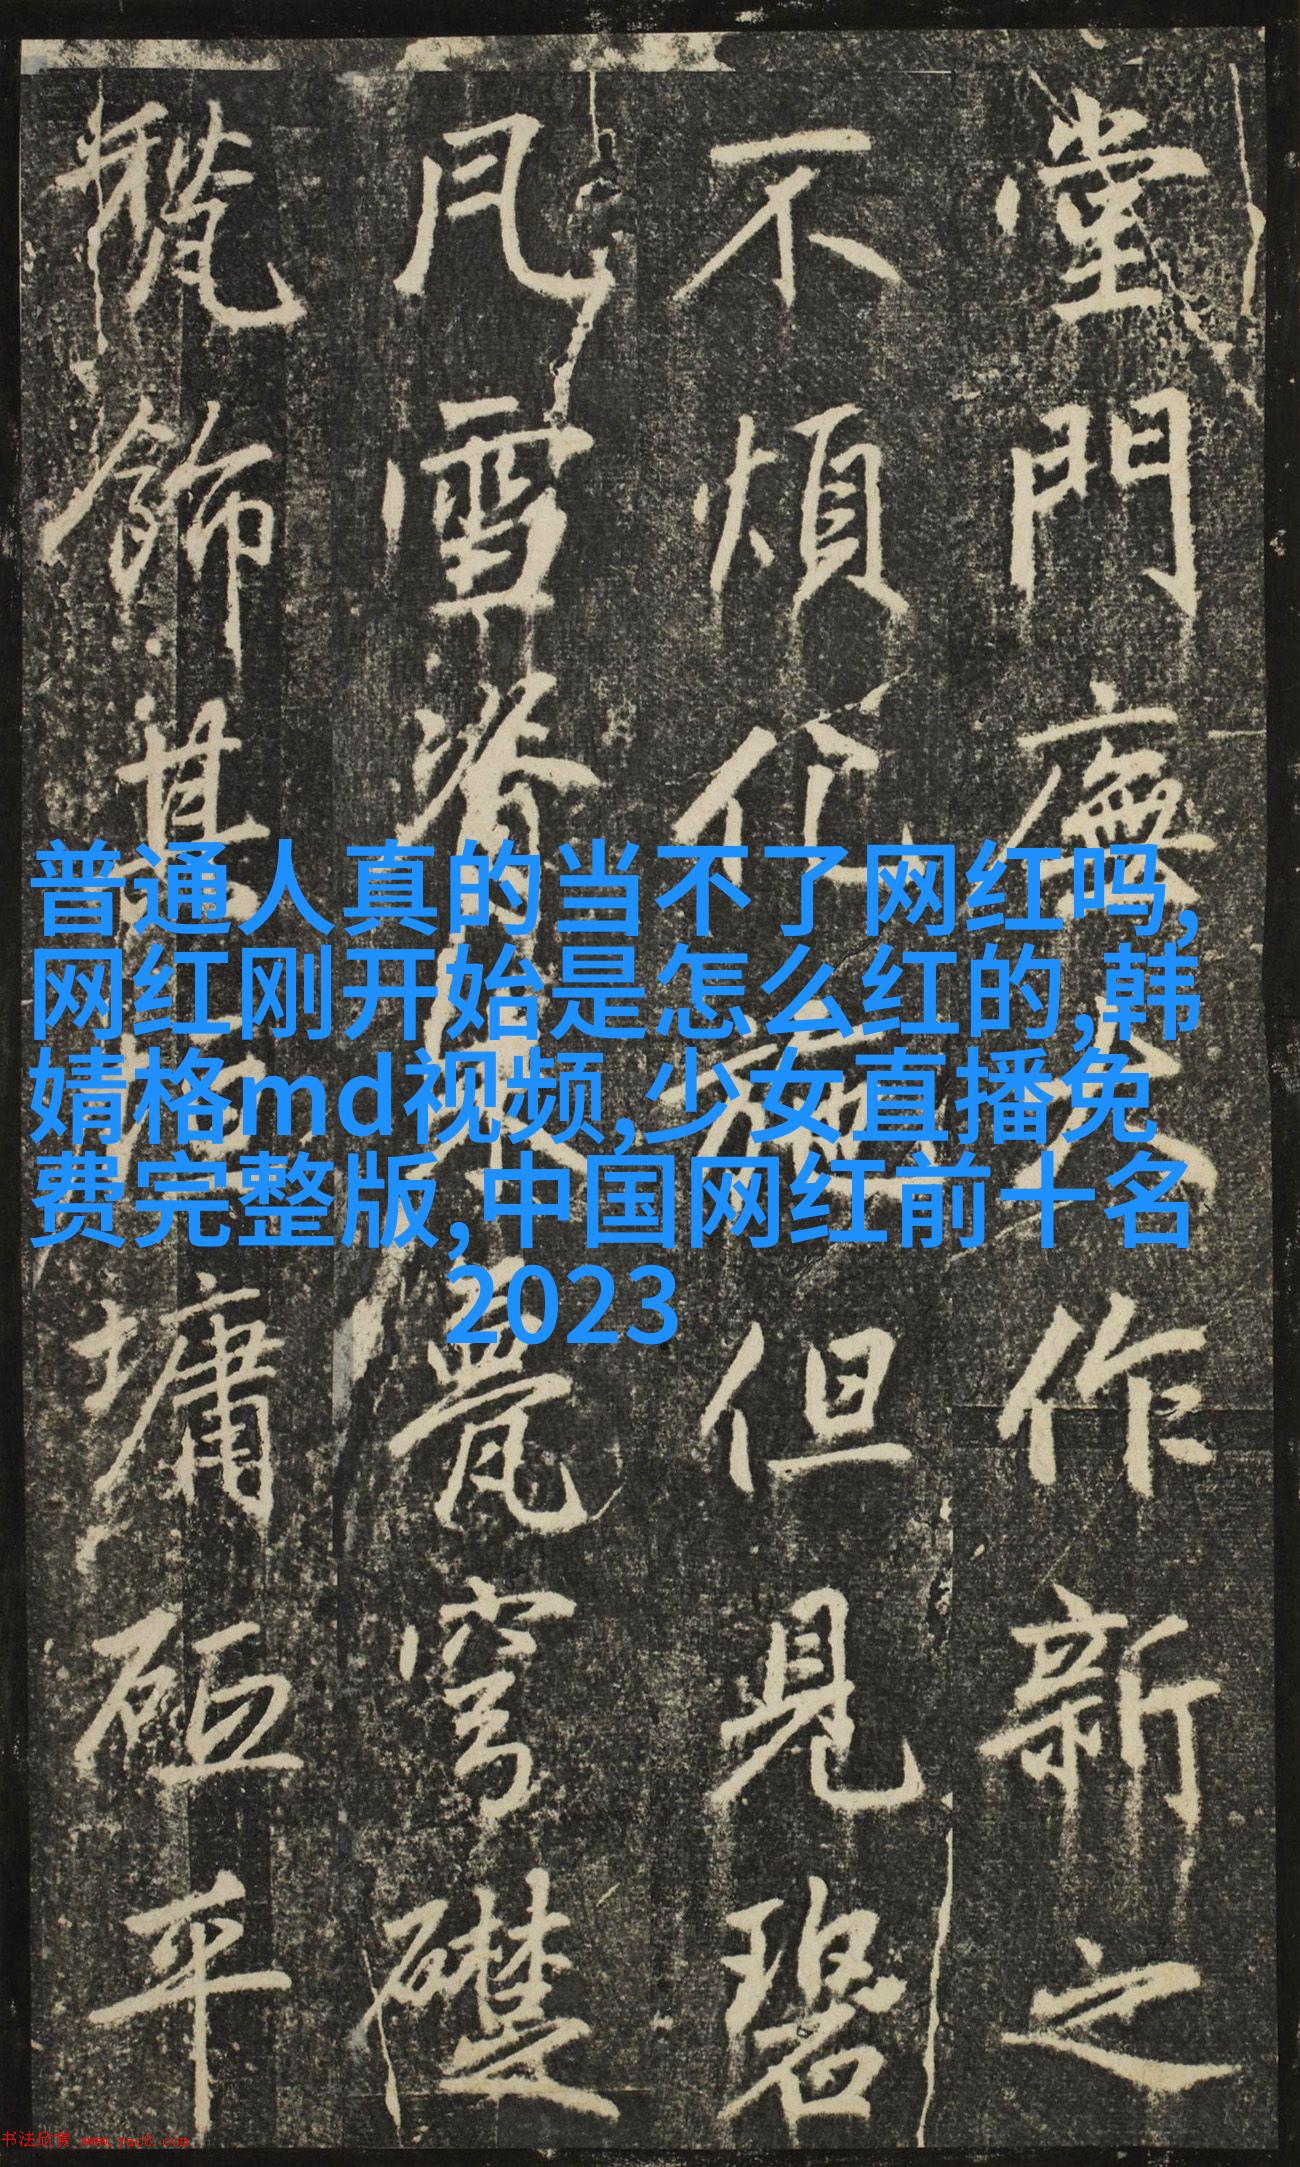 堂門廡作新之
不煩化施但見碧
凡雪脊甍穹礎
飾其墉砠平
普通人真的当不了网红吗,
网红刚开始是怎么红的,韩
婧格md视频,少女直播免
费完整版,中国网红前十名
2023
书法欣赏 www.yac8.com